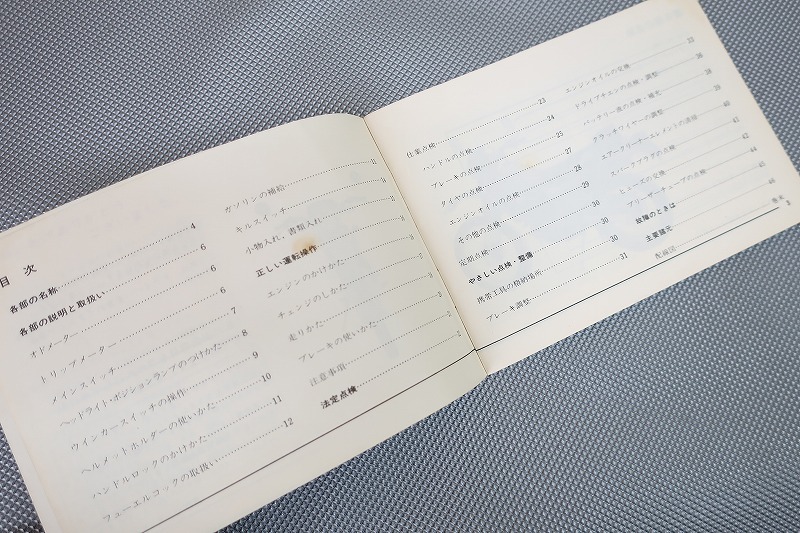 目 次
各部の名称 4
各部の説明と取扱い 6
オドメーター 6
トリップメーター 6
メインスイッチ 7
ヘッドライト・ポジションランプのつけかた 8
ウインカースイッチの操作 9
ヘルメットホルダーの使いかた 10
ハンドルロックのかけかた 11
フューエルコックの取扱い 12
ガソリンの補給
キルスイッチ
小物入れ・書類入れ
正しい運転操作
エンジンのかけかた
チェンジのしかた
走りかた
ブレーキの使いかた
注意事項
法定点検
仕業点検 23
ハンドルの点検 24
ブレーキの点検 25
タイヤの点検 27
エンジンオイルの点検 28
その他の点検 29
定期点検 30
やさしい点検・整備 30
携帯工具の格納場所 30
ブレーキ調整 31
エンジンオイルの交換 33
ドライブチェンの点検・調整 36
バッテリー液の点検・補充 38
クラッチワイヤーの調整 39
エアークリーナーエレメントの清掃 40
スパークプラグの点検 41
ヒューズの交換 42
ブリーザーチューブの点検 44
故障のときは 45
主要諸元 46
配線図 巻末
3